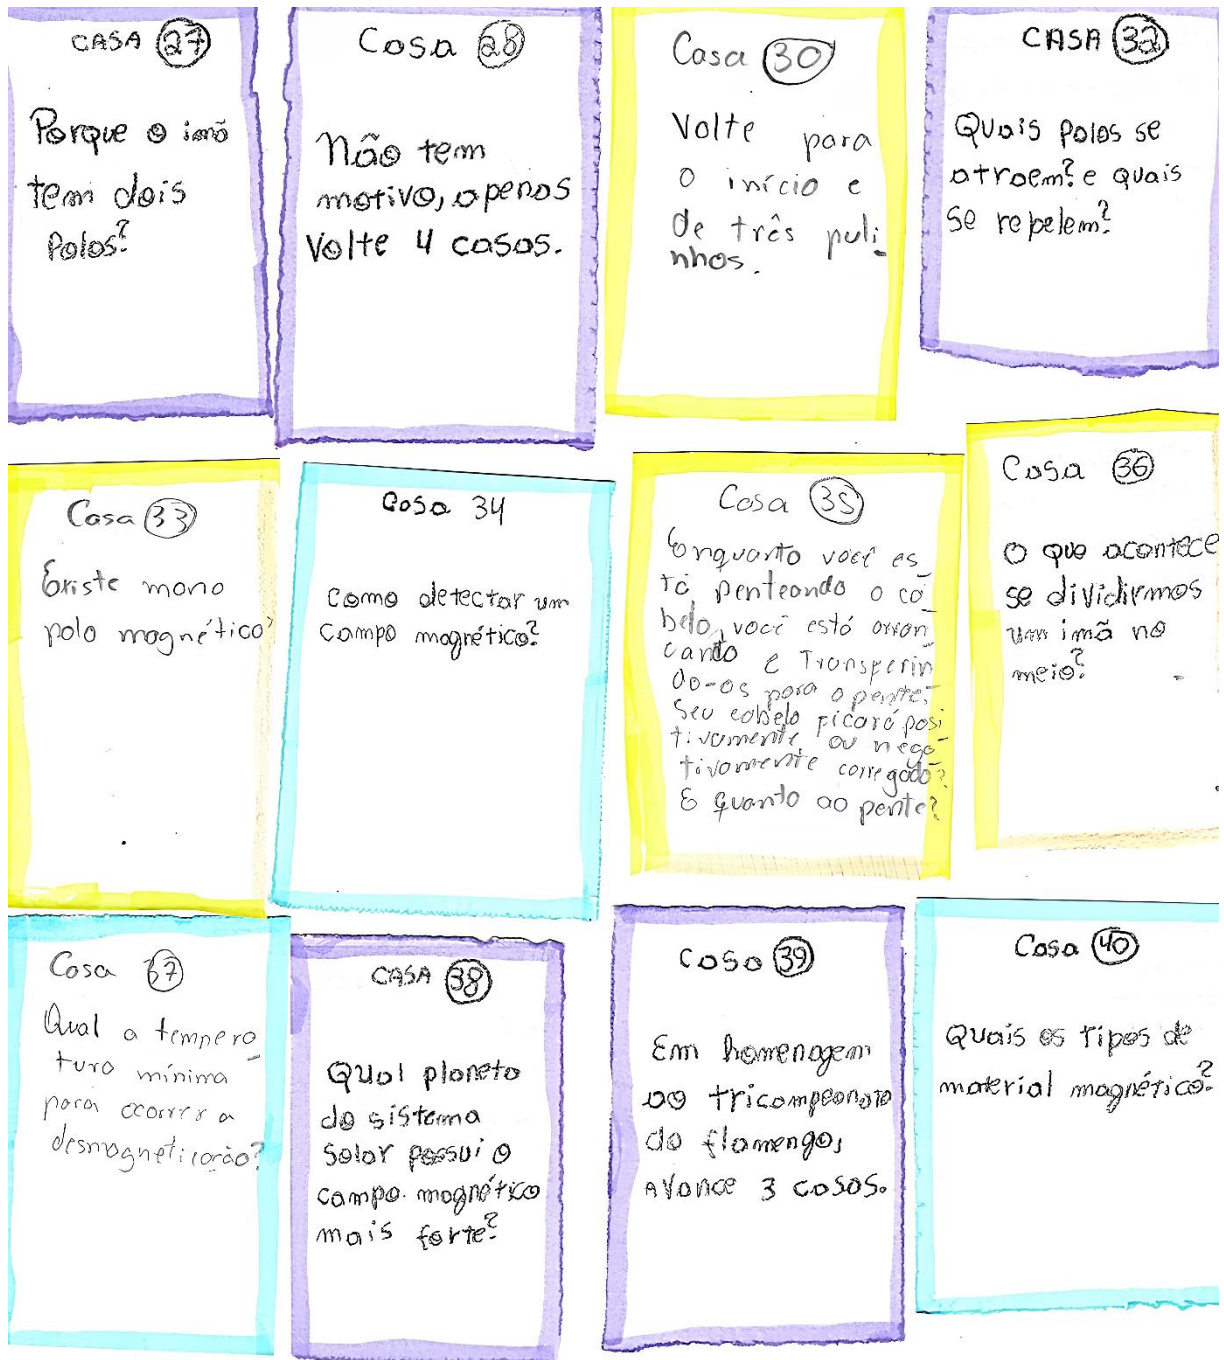 CASA 27
Porque o imã
tem dois
Polos?
Casa 28
Não tem
motivo, apenas
Volte 4 casas.
Casa 30
Volte para
o início e
de três puli_
nhos.
CASA 32
Quais Polos se
atraem? e quais
se repelem?
Casa 33
Existe mono
polo magnético?
Casa 34
Como detectar um
campo magnético?
Casa 35
Enquanto você es_
tá penteando o ca_
belo, você está arran_
cando e Transferin
do-os para o pente,
Seu cabelo ficará posi_
tivamente ou nega_
tivamente carregado?
E quanto ao pente?
Casa 36
O que acontece
se dividirmos
um imã no
meio?
Casa 37
Qual a tempera_
tura mínima
para ocorrer a
desmagnetização?
CASA 38
Qual planeta
do sistema
Solar possui o
campo magnético
mais forte?
Casa 39
Em homenagem
ao tricampeonato
do flamengo,
Avance 3 casas.
Casa 40
Quais os tipos de
material magnético?